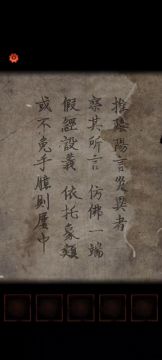 推陰陽言災異者
察其所言 仿佛一端
假經設義 依托象類
或不免乎臆則屢中